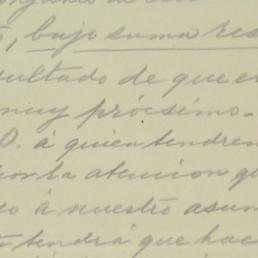 bajo suma res
sultado de que e
muy prócsimo.
O. á quien tendren
atencion q
o á nuestro asun
tendrá que hac